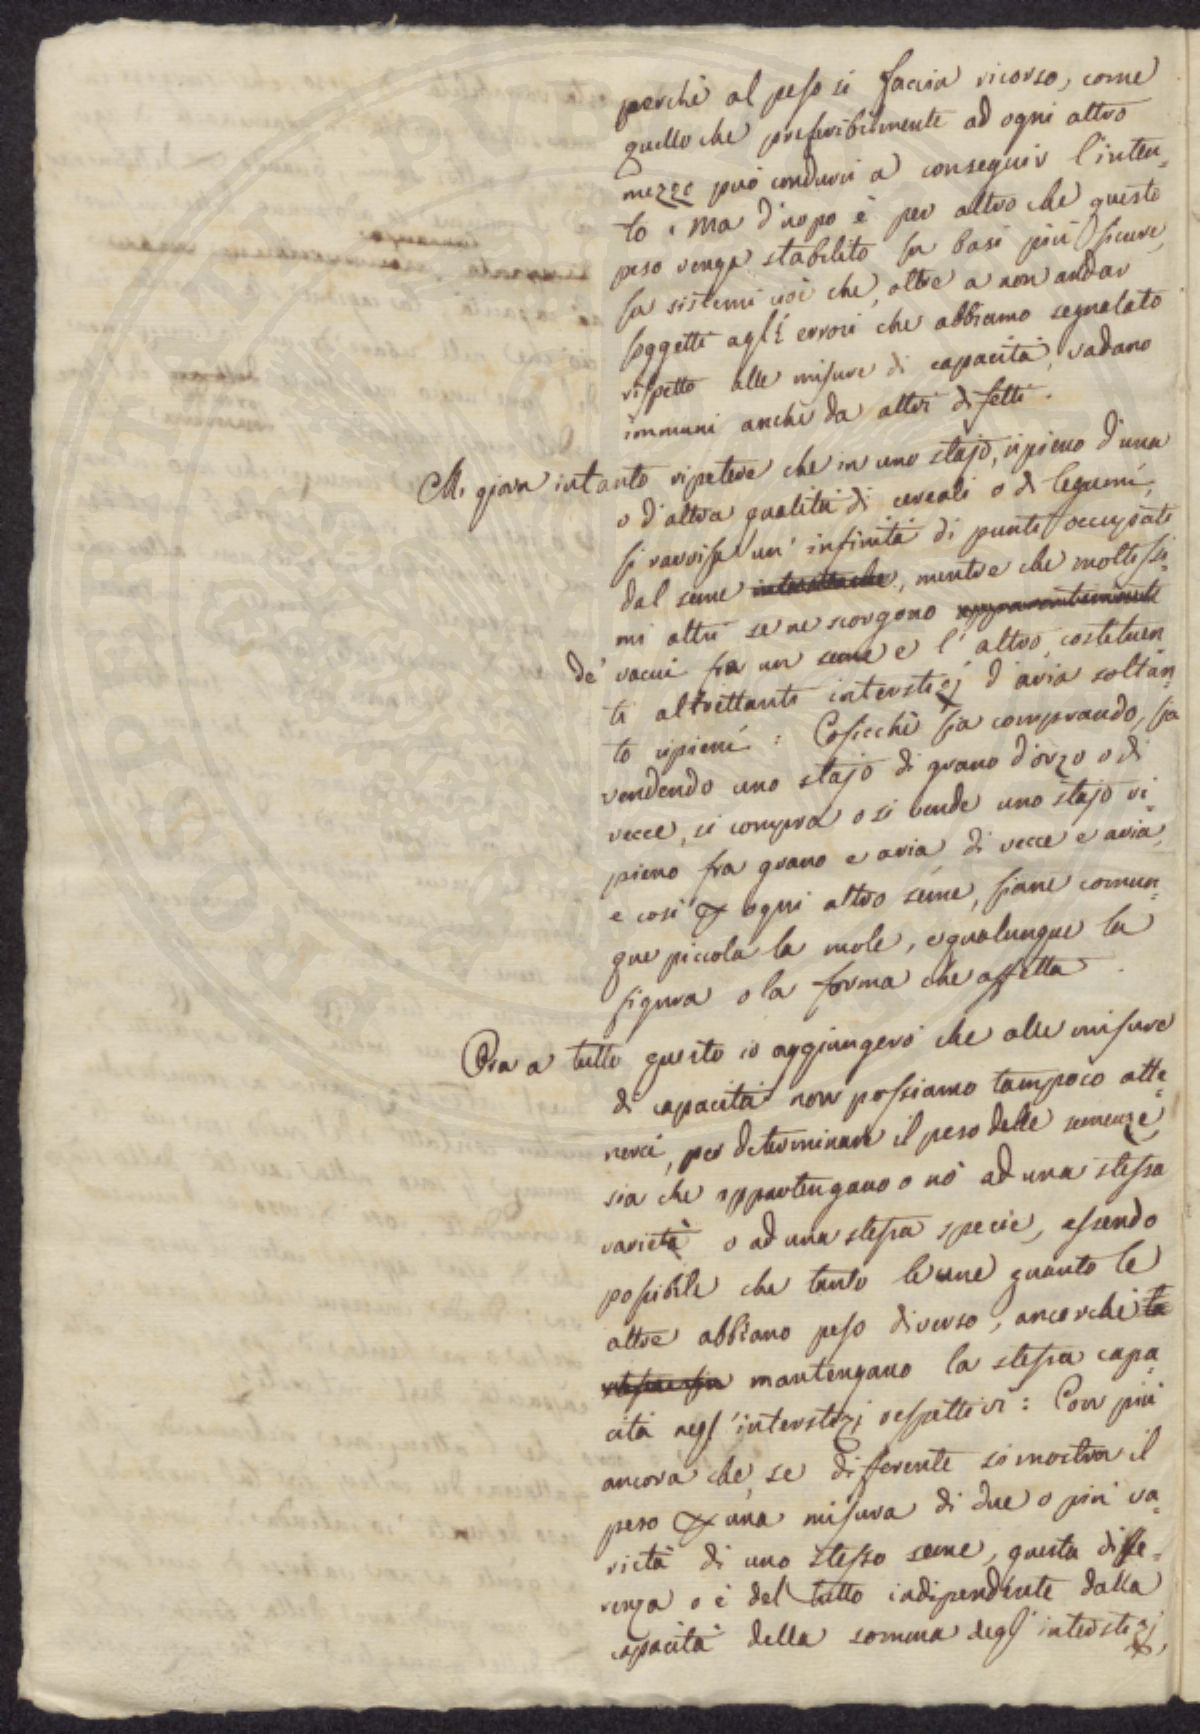 perchè al peso si faccia ricorso, come
quello che preferibilmente ad ogni altro
mezzo può condurci a conseguir l'inten-
to. Ma d'uopo è per altro che questo
peso venga stabilito su basi più sicure,
su sistemi cioè che, oltre a non andar
soggetti agli errori che abbiamo segnalato
rispetto alle misure di capacità, vadano
immuni anche da altri difetti.
Mi giova intanto ripetere che in uno stajo, ripieno d'una
o d'altra qualità di cereali o di legumi,
si ravvisa un' infinità di punti occupati
dal seme, mentre che moltissi-
mi altri se ne scorgono apparentemente
de' vacui fra un seme e l'altro, costituen
ti altrettanti interstizj d'aria soltan-
to ripieni: Cosicchè sia comprando, sia
vendendo uno stajo di grano d'orzo o di
vecce, si compra o si vende uno stajo ri-
pieno fra grano e aria, di vecce e aria,
e così & ogni altro seme, siane comun-
que piccola la mole, e qualunque la
figura o la forma che affetta.
Ora a tutto questo io aggiungerò che alle misure
di capacità non possiamo tampoco atte-
nerci, per determinare il peso delle semenze,
sia che appartengano o nò ad una stessa
varietà o ad una stessa specie, essendo
possibile che tanto le une quanto le
altre abbiano peso diverso, ancorchè la
mantengano la stessa capa-
cità negl'interstizj respettivi: Con più
ancora che, se differente si mostra il
peso & una misura di due o più va-
rietà di uno stesso seme, questa diffe-
renza o è del tutto indipendente dalla
capacità della somma degl'interstizj,